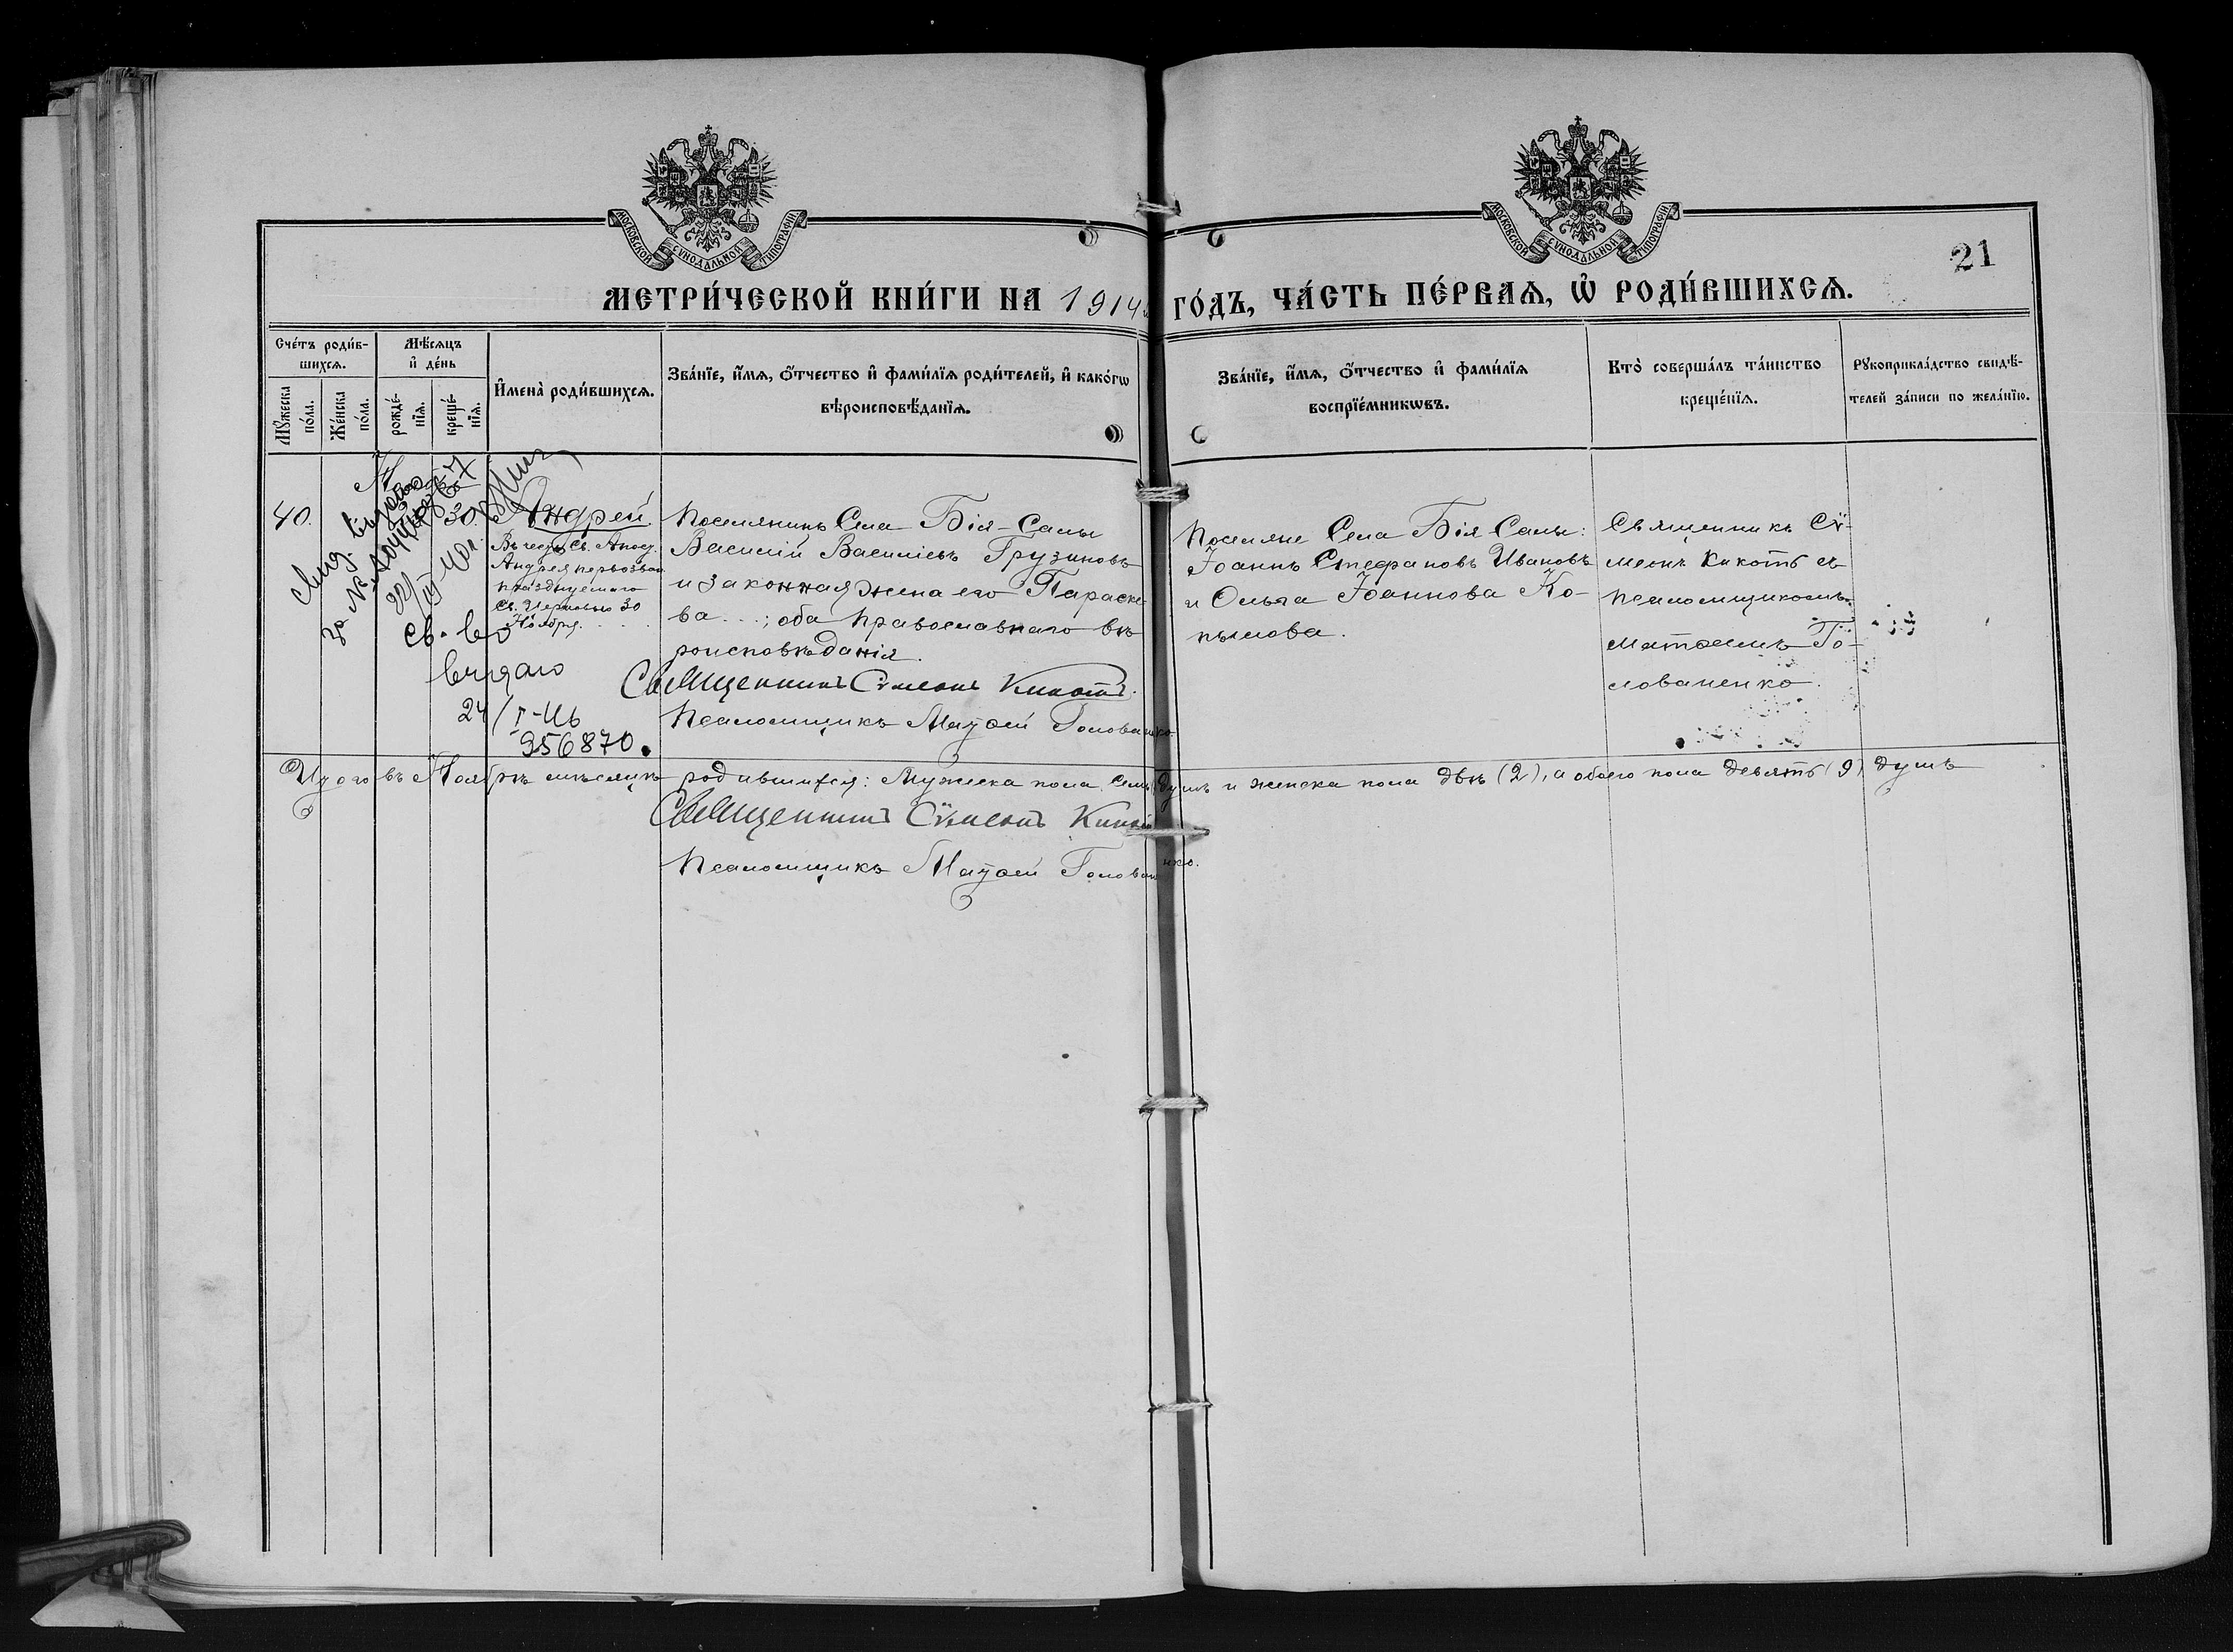 МОСКОВСКОЙ СѴНОДАЛЬНОЙ ТИПОГРАФІИ
МОСКОВСКОЙ СѴНОДАЛЬНОЙ ТИПОГРАФІИ
21
МЕТРИ́ЧЕСКОЙ КНИ́ГИ НА 1914 ГО́ДЪ, ЧА́СТЬ ПЕ́РВАЯ, Ѡ҆ РОДИ́ВШИХСЯ.
Сче́тъ роди́в-
шихся.
Мꙋ́жеска по́ла.
Же́нска по́ла.
Мѣ́сяцъ
и҆ де́нь
рожде́-
нїя.
креще́-
нїя.
И҆мена̀ роди́вшихся.
Зва́нїе, и҆́мя, ѻ҆́тчество и҆ фами́лїя роди́телей, и҆ како́гѡ
вѣроисповѣ́данїя.
Зва́нїе, и҆́мя, ѻ҆́тчество и҆ фами́лїя
воспрїе́мникѡвъ.
Кто̀ соверша́лъ та́инство
креще́нїя.
Рꙋкоприкла́дство свидѣ́-
телей за́писи по жела́нїю.
40.
30.
Андрей
Въ честь Св. Апос.
Андрея первозван.
празднуемаго
Св. Церковью 30
Ноября.
Поселянинъ Села Бія-Салы
Василій Василіевъ Грузиновъ
и законная жена его Параске-
ва...; оба православнаго вѣ
роисповѣданія.
Священникъ Сѵмеонъ Кикоть.
Псаломщикъ Матѳей Голованенко
Поселяне Села Бія Салы:
Іоаннъ Стефановъ Ивановъ
и Ольга Іоаннова Ко-
пылова.
Священникъ Сѵ-
меонъ Кикоть съ
псаломщикомъ
Матѳеемъ Го-
лованенко.
Свид. выдано
за №
22/IV 40 г.
Св-во
выдано
24/I-46
356870.
Итого въ Ноябрѣ мѣсяцѣ родившихся: Мужеска пола семь душъ и женска пола двѣ (2), а обоего пола девять (9) душъ
Священникъ Сѵмеонъ Кикоть
Псаломщикъ Матѳей Голованенко.